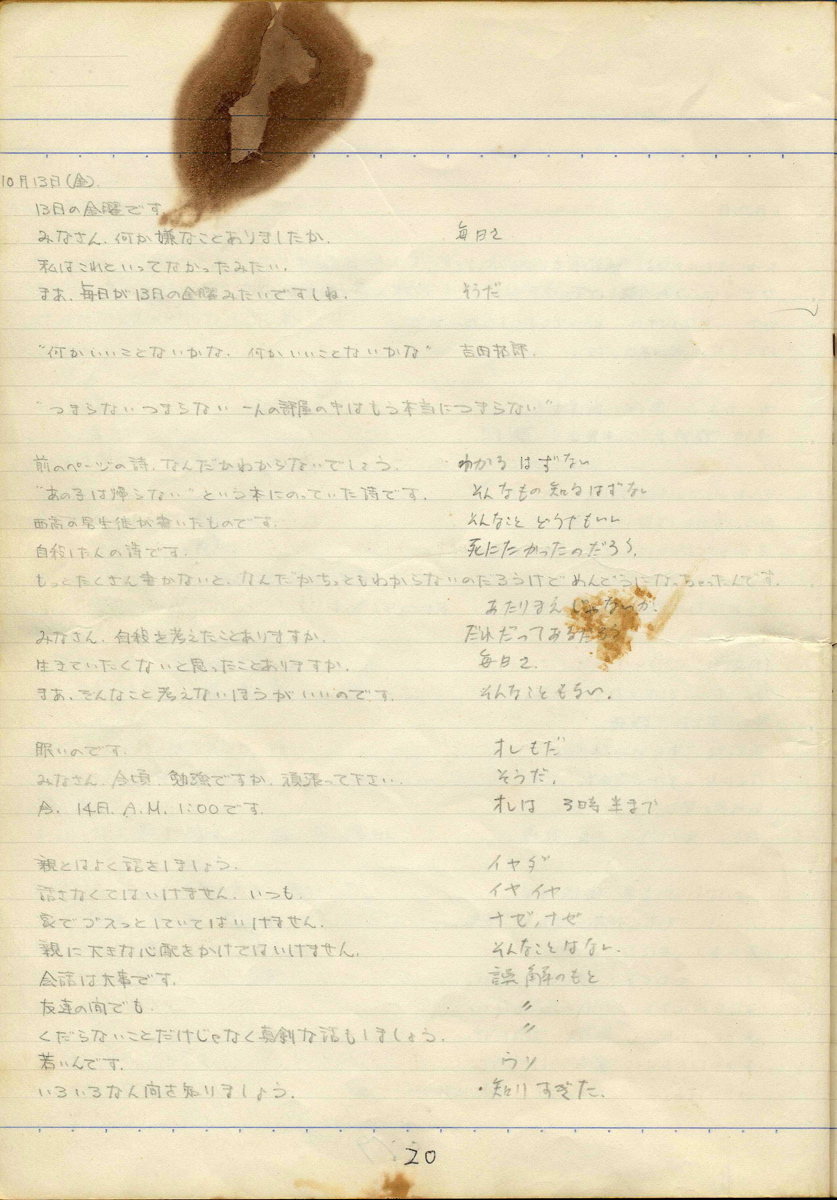 10月13日(金).
13日の金曜です
みなさん、何か嫌なことありましたか. 毎日さ
私はこれといってなかったみたい.
まあ、毎日が13日の金曜みたいですしね. そうだ
"何かいいことないかな、何かいいことないかな" 吉田拓郎.
"つまらないつまらない 一人の部屋の中はもう本当につまらない"
前のページの詩、なんだかわからないでしょう. わかるはずない
"あの子は帰らない"という本にのっていた詩です. そんなもの知るはずない
西高の男生徒が書いたものです. そんなことどうでもいい
自殺した人の詩です. 死にたかったのだろう.
もっとたくさん書かないと、なんだかちっともわからないのだろうけどめんどうになっちゃったんです.
あたりまえじゃないか.
みなさん、自殺を考えたことありますか. だれだってあるだろう
生きていたくないと思ったことありますか. 毎日さ.
まあ、そんなこと考えないほうがいいのです. そんなこともない.
眠いのです. オレもだ
みなさん、今頃、勉強ですか、頑張って下さい. そうだ.
今、14日、A.M. 1:00です. オレは 3時半まで
親とはよく話をしましょう. イヤダ
話さなくてはいけません、いつも. イヤイヤ
家でブスっとしていてはいけません. ナゼ,ナゼ
親に大きな心配をかけてはいけません. そんなことはない.
会話は大事です. 誤解のもと
友達の間でも. 〃
くだらないことだけじゃなく真剣な話もしましょう. 〃
若いんです. ウソ
いろいろなん向を知りましょう. ・知りすぎた.
20